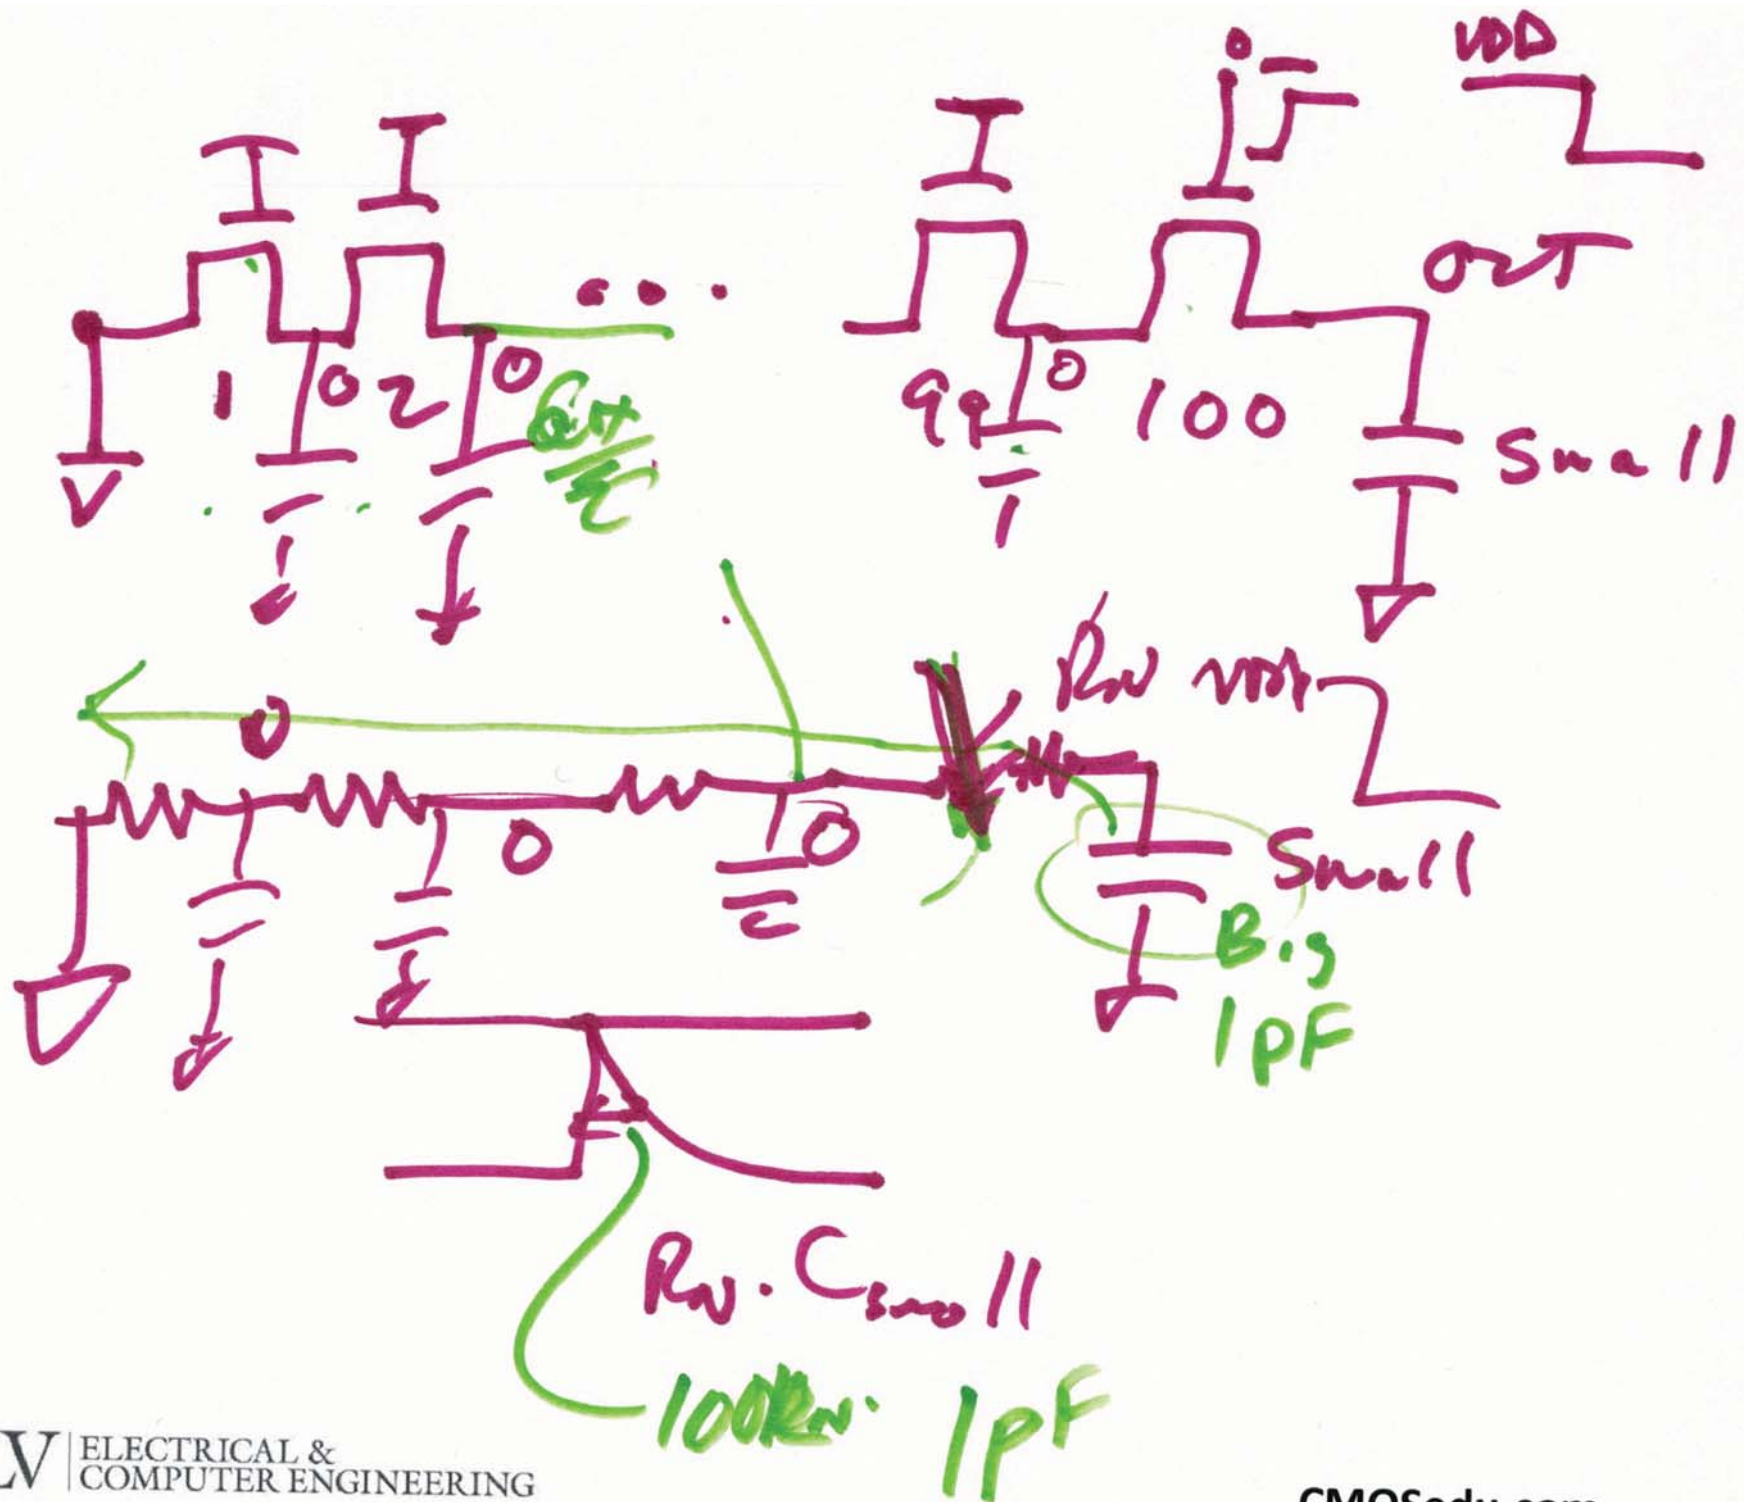 VDD
OUT
1 0 2 0
99 0 100
Small
RN VDD
0
0 0
Small
Big
1pF
RN · Csmall
100RN · 1pF
ELECTRICAL &
COMPUTER ENGINEERING